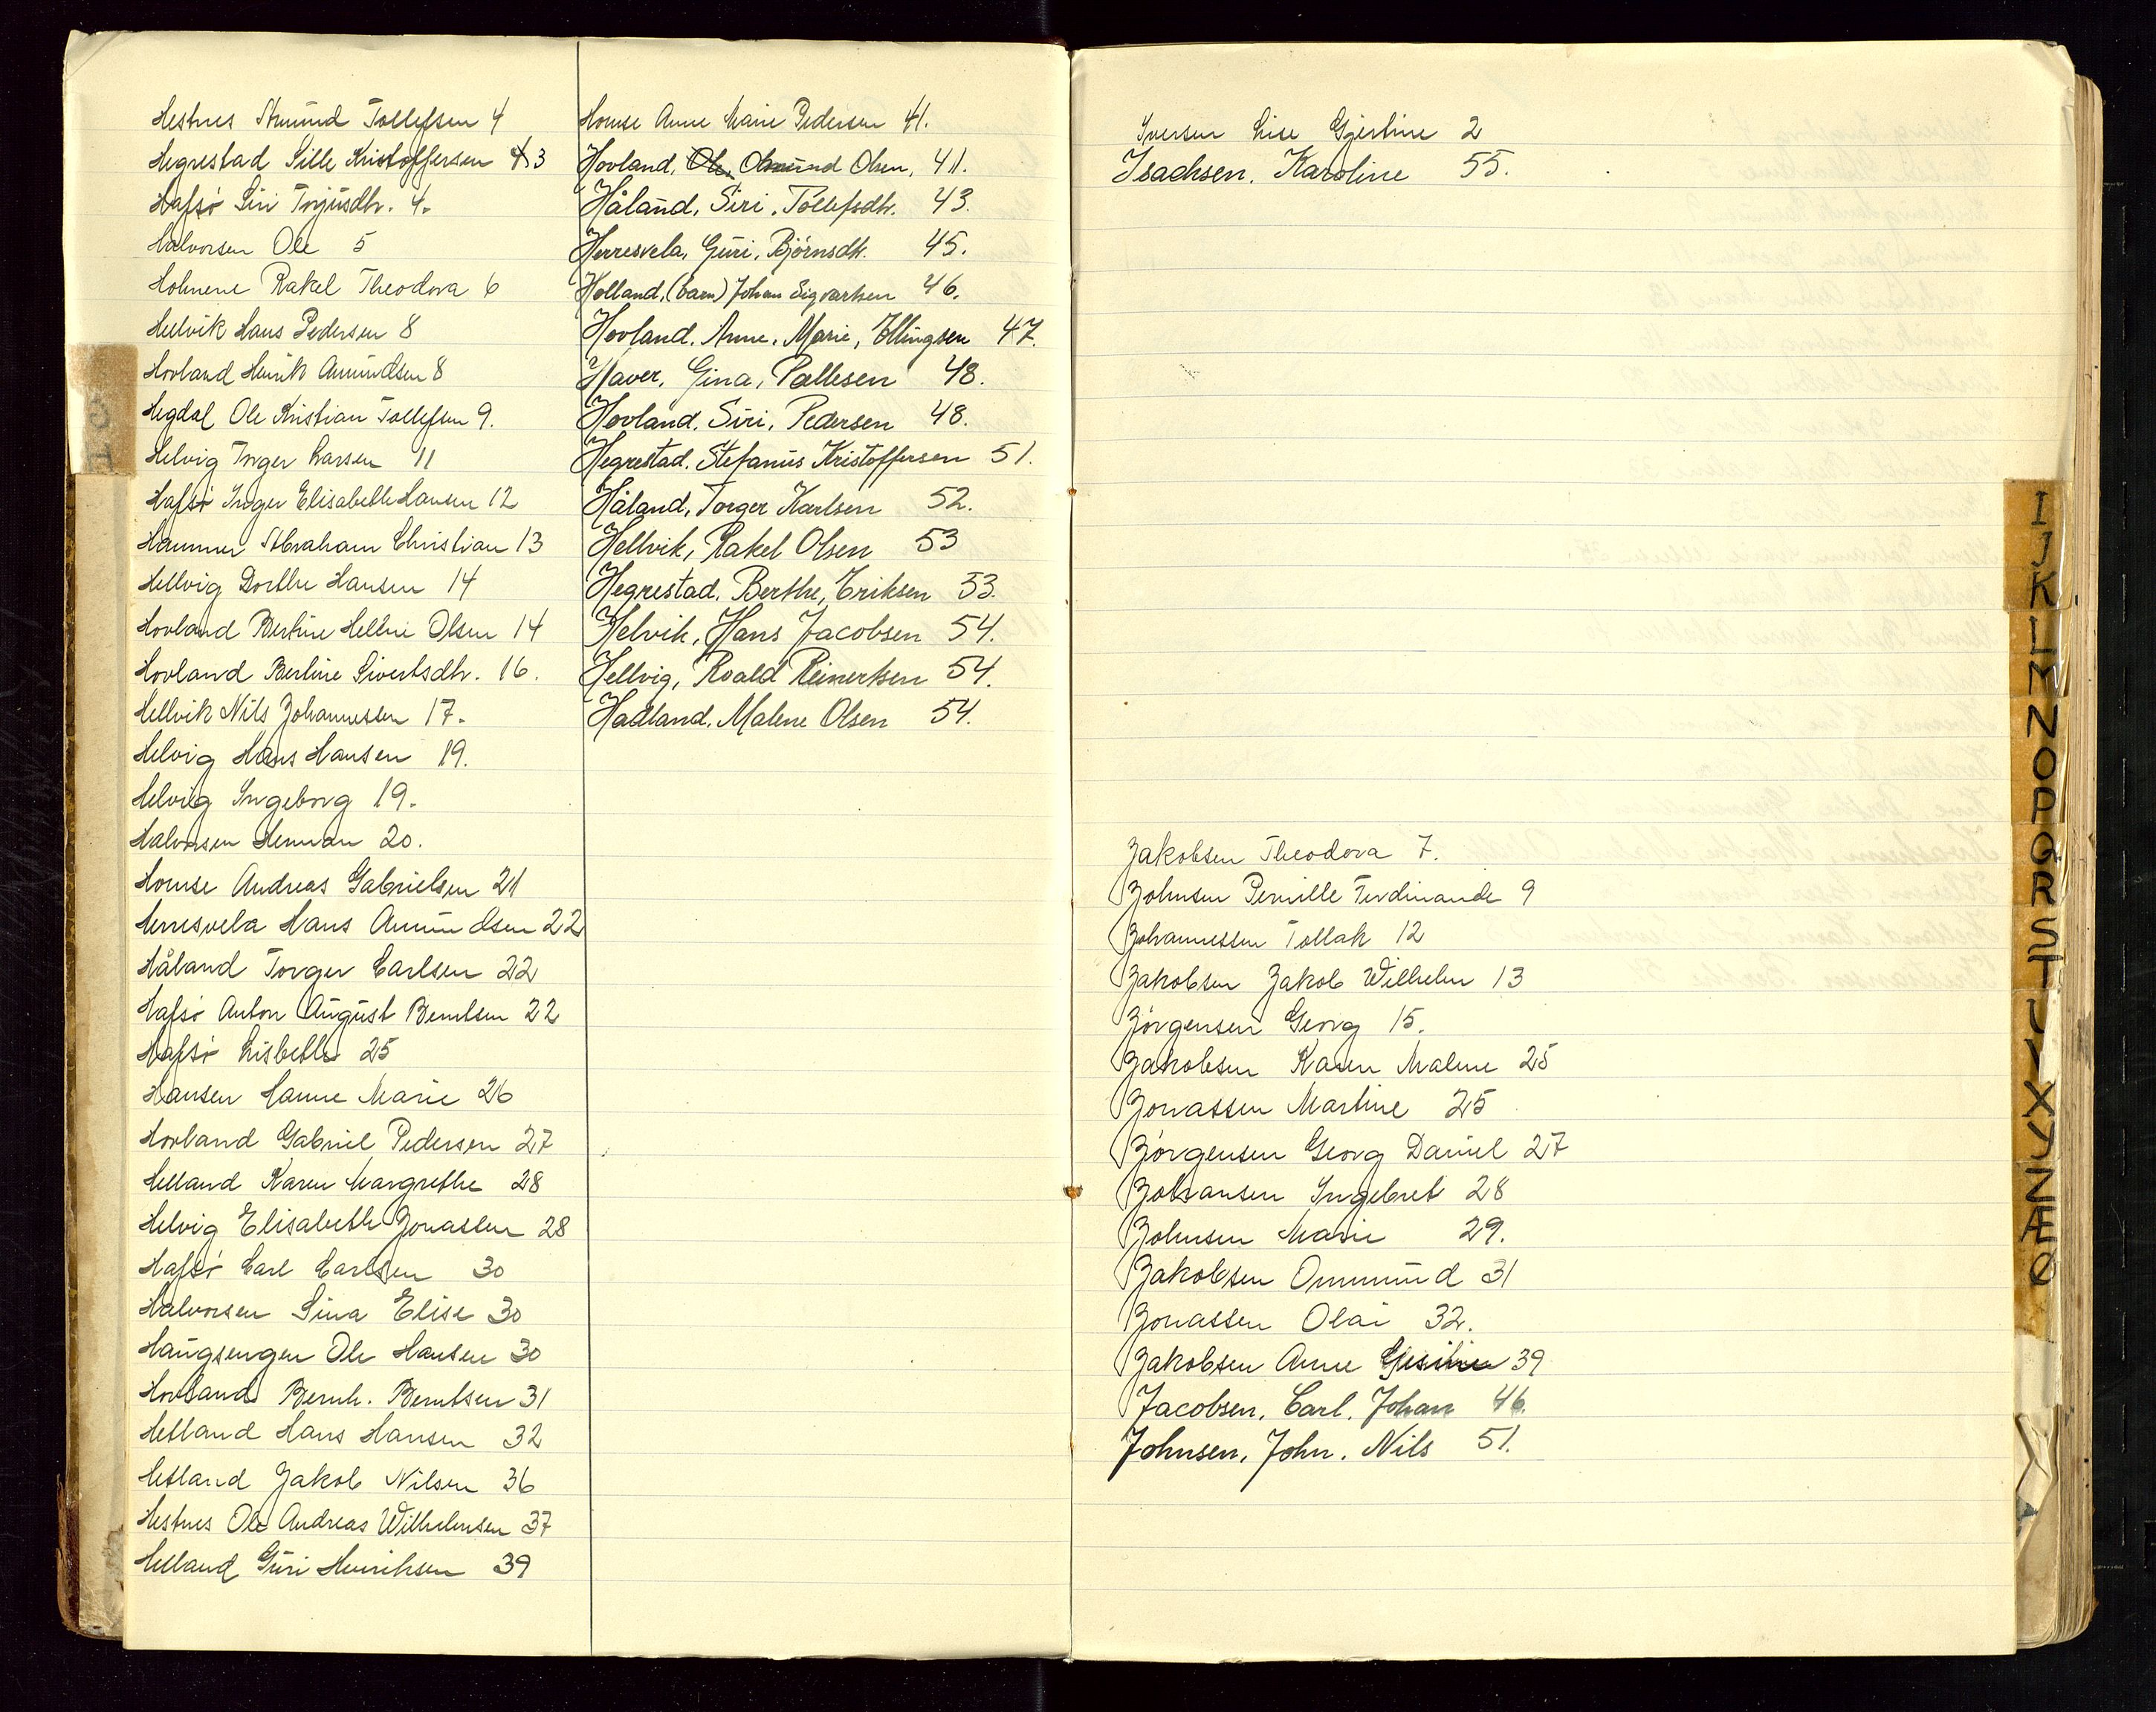 Hestnes Amund Tollefsen 4
Hegrestad Sille Kristoffersen 3
Hafsö Siri Torjusdtr. 4.
Halvorsen Ole 5
Holmene Rakel Theodora 6
Helvik Hans Pedersen 8
Hovland Henrik Amundsen 8
Hegdal Ole Kristian Tollefsen 9.
Helvig Torger Larsen 11
Hafsö Inger Elisabeth Hansen 12
Hammer Abraham Christian 13
Hellvig Dorthe Hansen 14
Hovland Bertine Helene Olsen 14
Hovland Bertine Sivertsdtr. 16.
Hellvik Nils Johannessen 17.
Helvig Hans Hansen 19.
Helvig Ingeborg 19.
Halvorsen Herman 20.
Homse Andreas Gabrielsen 21
Herresvela Hans Amundsen 22
Håland Torger Carlsen 22
Hafsö Anton August Berntsen 22
Hafsö Lisbeth 25
Hansen Hanne Marie 26
Hovland Gabriel Pedersen 27
Helland Karen Margrethe 28
Helvig Elisabeth Jonassen 28
Hafsö Carl Carlsen 30
Halvorsen Sina Elise 30
Haugsengen Ole Hansen 30
Hovland Bernh. Berntsen 31
Hetland Hans Hansen 32
Hetland Jakob Nilsen 36
Hestnes Ole Andreas Wilhelmsen 37
Helland Guri Henriksen 39
Homse Anne Marie Pedersen 41.
Hovland, Ole, Olsen, 41.
Håland, Siri, Tollefsdtr. 43.
Herresvela, Guri, Björnsdtr. 45.
Holland, (barn) Johan Sigvartsen 46.
Hovland. Anne. Marie, Ellingsen 47.
Haver, Gina, Pallesen 48.
Hovland. Siri, Pedersen 48.
Hegrestad. Stefanus Kristoffersen 51.
Håland, Torger Karlsen 52.
Hellvik, Rakel Olsen 53
Hegrestad. Berthe, Eriksen 53.
Helvik, Hans Jacobsen 54.
Hellvig, Roald Reinertsen 54.
Hadland. Malene Olsen 54.
Iversen Lise Gjertine 2
Isachsen. Karoline 55.
Jakobsen Theodora 7.
Johnsen Pernille Ferdinande 9
Johannessen Tollak 12
Jakobsen Jakob Wilhelm 13
Jörgensen Georg 15.
Jakobsen Karen Malene 25
Jonassen Martine 25
Jörgensen Georg Daniel 27
Johansen Ingebret 28
Johnsen Marie 29.
Jakobsen Ommund 31
Jonassen Olai 32.
Jakobsen Anne 39
Jacobsen, Carl. Johan 46.
Johnsen, John. Nils 51.
I
J
K
L
M
N
O
P
Q
R
S
T
X
Y
Z
Æ
Ø